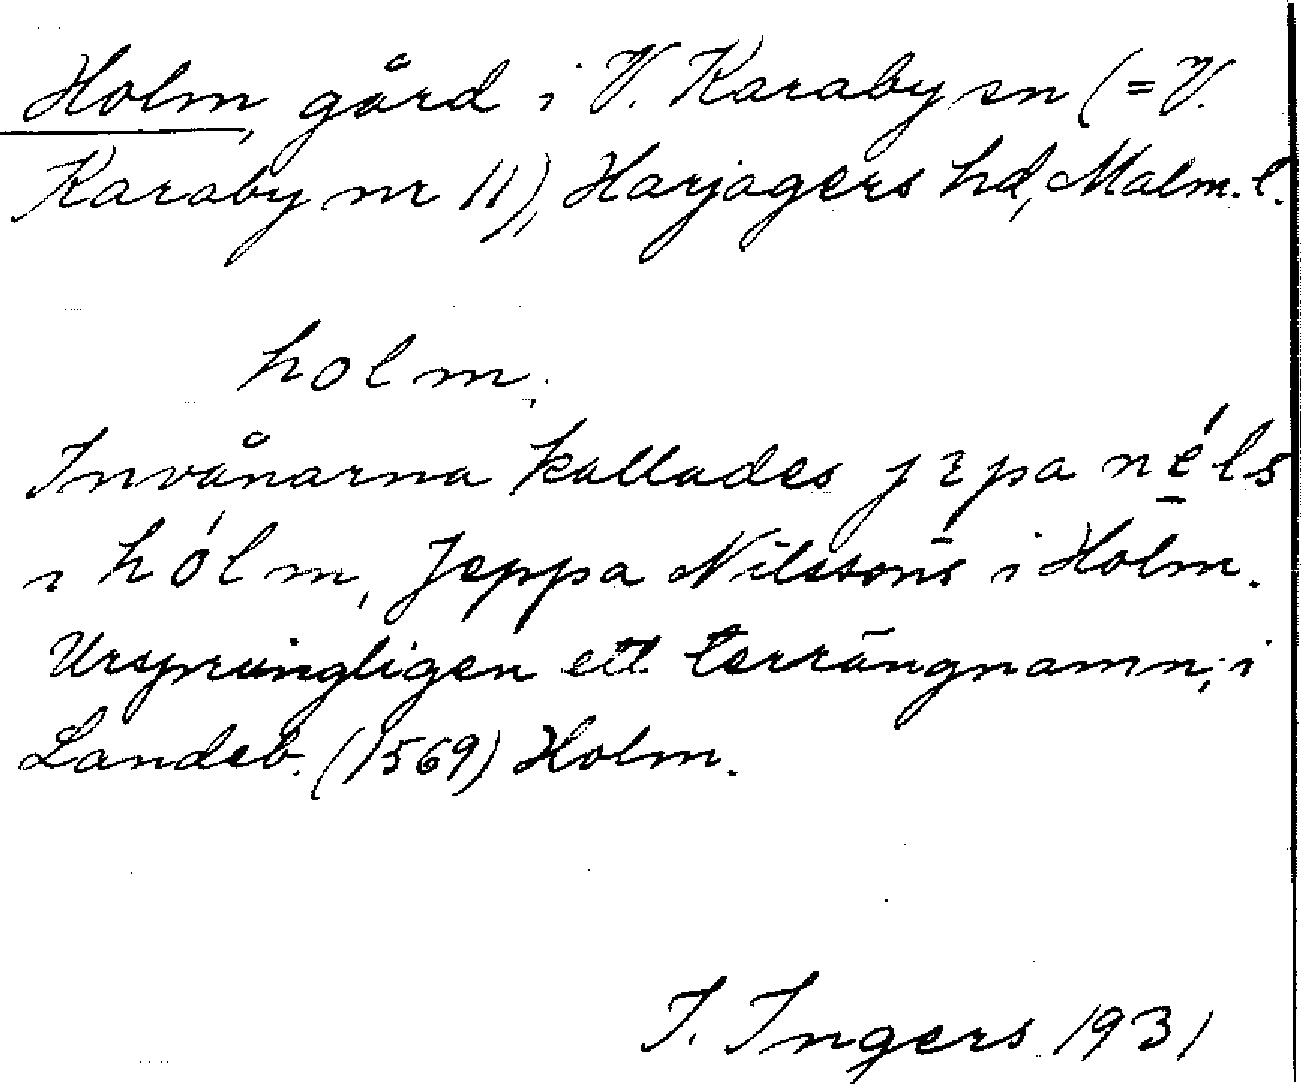 Holm, gård i V. Karaby sn (= V.
Karaby nr 11), Harjagers hd, Malm. l.
holm.
Invånarna kallades jɛpa néls
i hólm, Jeppa Nilssons i Holm.
Ursprungligen ett terrängnamn; i
Landeb. (1569) Holm.
I. Ingers 1931